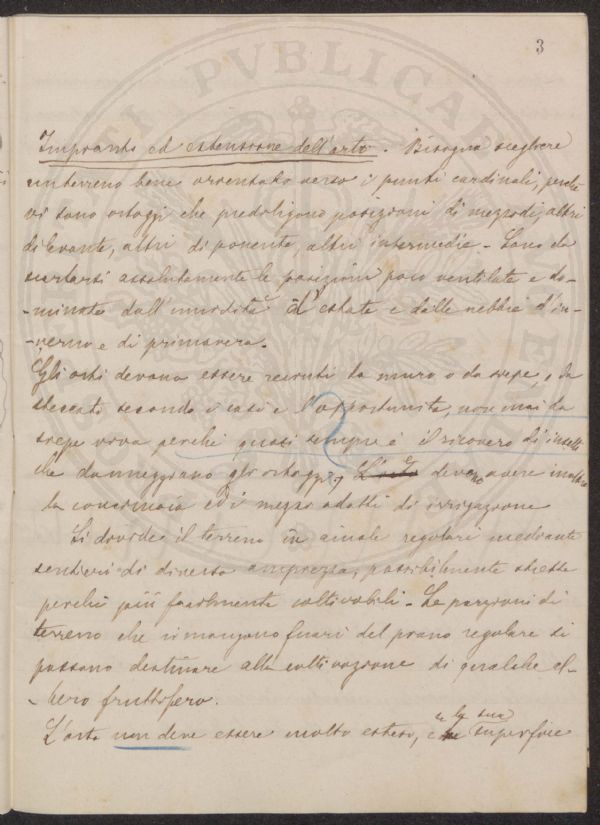 3
Impianto ed estensione dell'orto. Bisogna scegliere
un terreno bene orientato verso i punti cardinali, perché
vi sono ortaggi che prediligono posizioni di mezzodì, altri
di levante, altri di ponente, altri intermedie - Sono da
scartarsi assolutamente le posizioni poco ventilate e do-
-minate dall'umidità d'estate e dalle nebbie d'in-
-verno e di primavera.
Gli orti devono essere recinti da muro, o da siepe, o da
steccati secondo i casi e l'opportunità, non mai da
siepe viva perché quasi sempre è il ricovero di insetti
che danneggiano gli ortaggi, devono avere inoltre
la concimaia ed i mezzi adatti di irrigazione
Si divide il terreno in aiuole regolari mediante
sentieri di diversa ampiezza, possibilmente strette
perché più facilmente coltivabili - Le porzioni di
terreno che rimangono fuori del piano regolare si
possano destinare alla coltivazione di qualche al-
-bero fruttifero.
L'orto non deve essere molto esteso, e la sua superficie
PVBLICAE